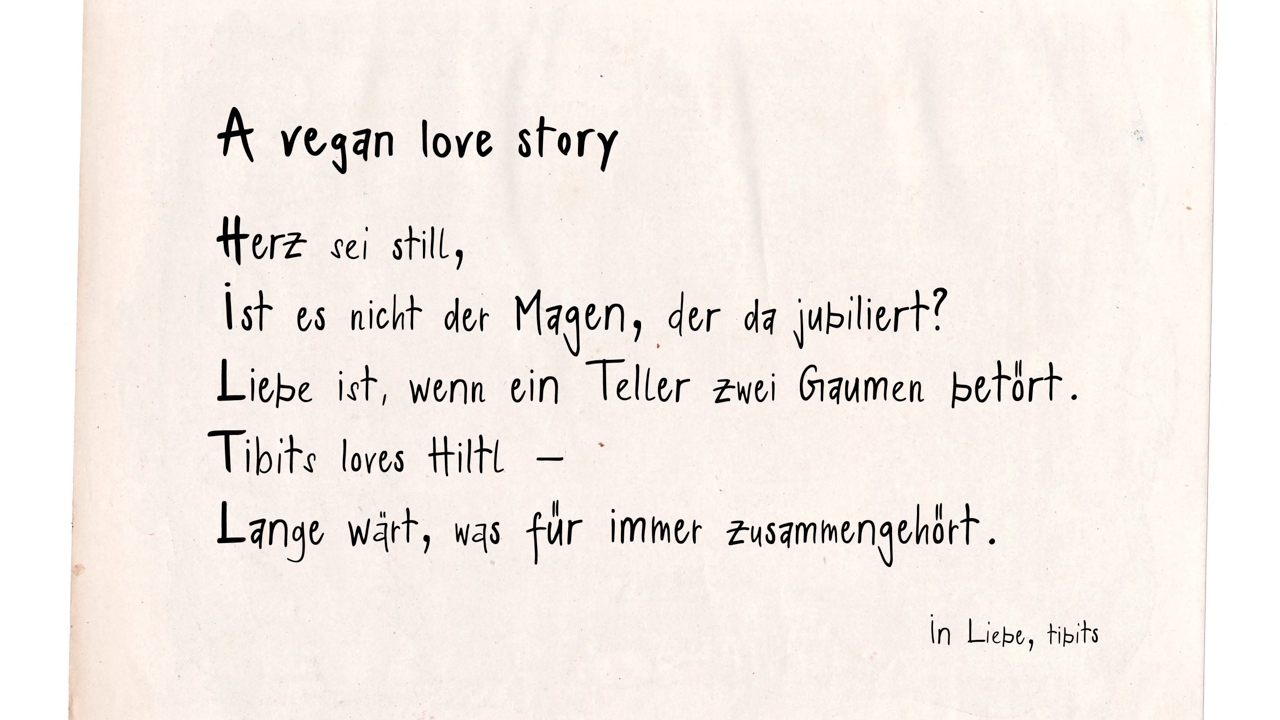 A vegan love story
Herz sei still,
Ist es nicht der Magen, der da jubiliert?
Liebe ist, wenn ein Teller zwei Gaumen betört.
Tibits loves Hiltl –
Lange wärt, was für immer zusammengehört.
in Liebe, tibits